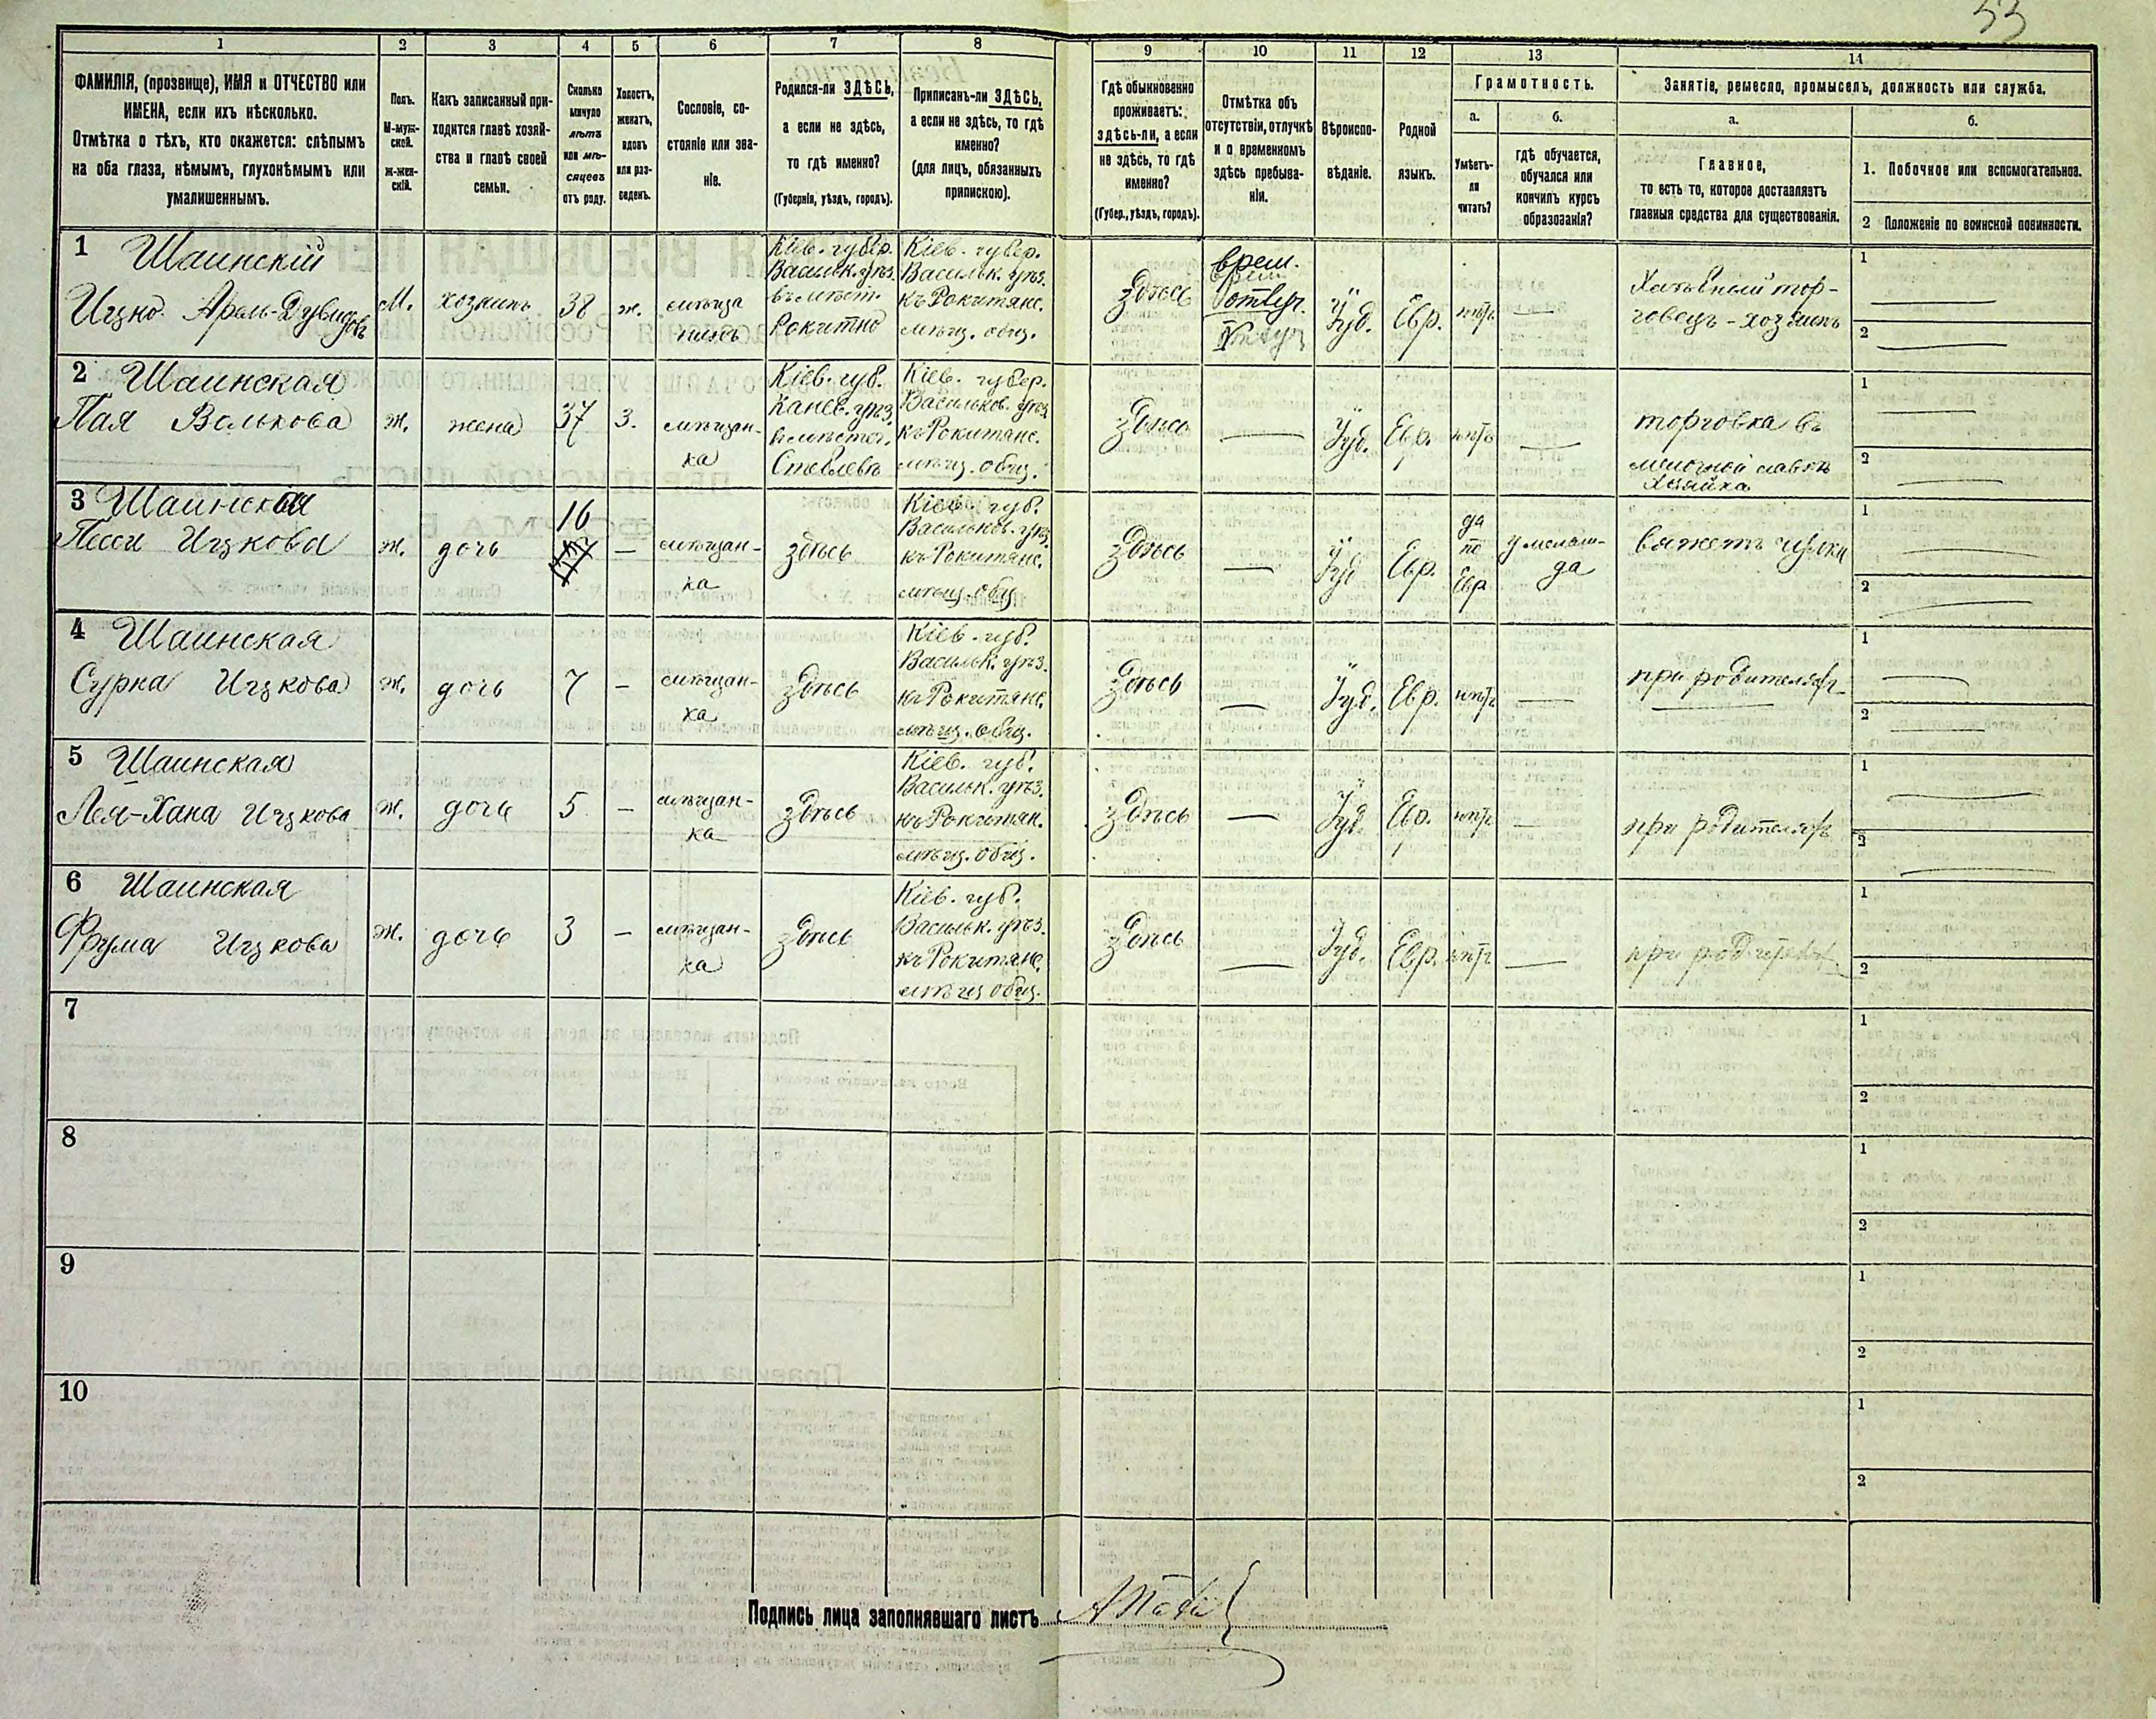 53
1
2
3
4
5
6
7
8
9
10
11
12
13
14
ФАМИЛІЯ, (прозвище), ИМЯ и ОТЧЕСТВО или
ИМЕНА, если ихъ нѣсколько.
Отмѣтка о тѣхъ, кто окажется: слѣпымъ
на оба глаза, нѣмымъ, глухонѣмымъ или
умалишеннымъ.
Полъ.
М-муж-
ской.
Ж-жен-
скій.
Какъ записанный при-
ходится главѣ хозяй-
ства и главѣ своей
семьи.
Сколько
минуло
лѣтъ
или мѣ-
сяцевъ
отъ роду.
Холостъ,
женатъ,
вдовъ
или раз-
веденъ.
Сословіе, со-
стояніе или зва-
ніе.
Родился-ли ЗДѢСЬ,
а если не здѣсь,
то гдѣ именно?
(Губернія, уѣздъ, городъ).
Приписанъ-ли ЗДѢСЬ,
а если не здѣсь, то гдѣ
именно?
(для лицъ, обязанныхъ
припискою).
Гдѣ обыкновенно
проживаетъ:
здѣсь-ли, а если
не здѣсь, то гдѣ
именно?
(Губер., уѣздъ, городъ).
Отмѣтка объ
отсутствіи, отлучкѣ
и о временномъ
здѣсь пребыва-
ніи.
Вѣроиспо-
вѣданіе.
Родной
языкъ.
Грамотность.
а.
Умѣетъ-
ли
читать?
б.
гдѣ обучается,
обучался или
кончилъ курсъ
образованія?
Занятіе, ремесло, промыселъ, должность или служба.
а.
Главное,
то есть то, которое доставляетъ
главныя средства для существованія.
б.
1. Побочное или вспомогательное.
2 Положеніе по воинской повинности.
1 Шаинскій
Ицко Арель-Дувидовъ
М.
хозяинъ
38
ж.
мѣща
нинъ
Кіев. губер.
Васильк. уѣз.
въ мѣст.
Рокитно
Кіев. губер.
Васильк. уѣз.
къ Рокитянс.
мѣщ. общ.
Здѣсь
врем.
отлуч.
Іуд.
Евр.
нѣтъ
торговецъ - хозяинъ
1
2
2 Шаинская
Пая Волькова
ж.
жена
37
з.
мѣщан-
ка
Кіев. губ.
Канев. уѣз.
Кіев. губер.
Васильков. уѣз.
къ Рокитянс.
мѣщ. общ.
Здѣсь
Іуд.
Евр.
нѣтъ
торговка въ
мелочной лавкѣ
хозяйка
1
2
3 Шаинская
Песси Ицкова
ж.
дочь
16
—
мѣщан-
ка
здѣсь
Кіев. губ.
Васильков. уѣз.
къ Рокитянс.
мѣщ. общ.
Здѣсь
Іуд
Евр.
да
по
Евр
у меламе-
да
вяжетъ чулки
1
2
4 Шаинская
Сурка Ицкова
ж.
дочь
7
—
мѣщан-
ка
Здѣсь
Кіев. губ.
Васильк. уѣз.
къ Рокитянс.
мѣщ. общ.
Здѣсь
Іуд.
Евр.
нѣтъ
при родителяхъ
1
2
5 Шаинская
Лея-Хана Ицкова
ж.
дочь
5
—
мѣщан-
ка
Здѣсь
Кіев. губ.
Васильк. уѣз.
къ Рокитян.
мѣщ. общ.
Здѣсь
Іуд.
Евр.
нѣтъ
при родителяхъ
1
2
6 Шаинская
Фрума Ицкова
ж.
дочь
3
—
мѣщан-
ка
Здѣсь
Кіев. губ.
Васильк. уѣз.
къ Рокитянс.
мѣщ общ.
Здѣсь
Іуд.
Евр.
нѣтъ
при родителях
1
2
7
1
2
8
1
2
9
1
2
10
1
2
Подпись лица заполнявшаго листъ